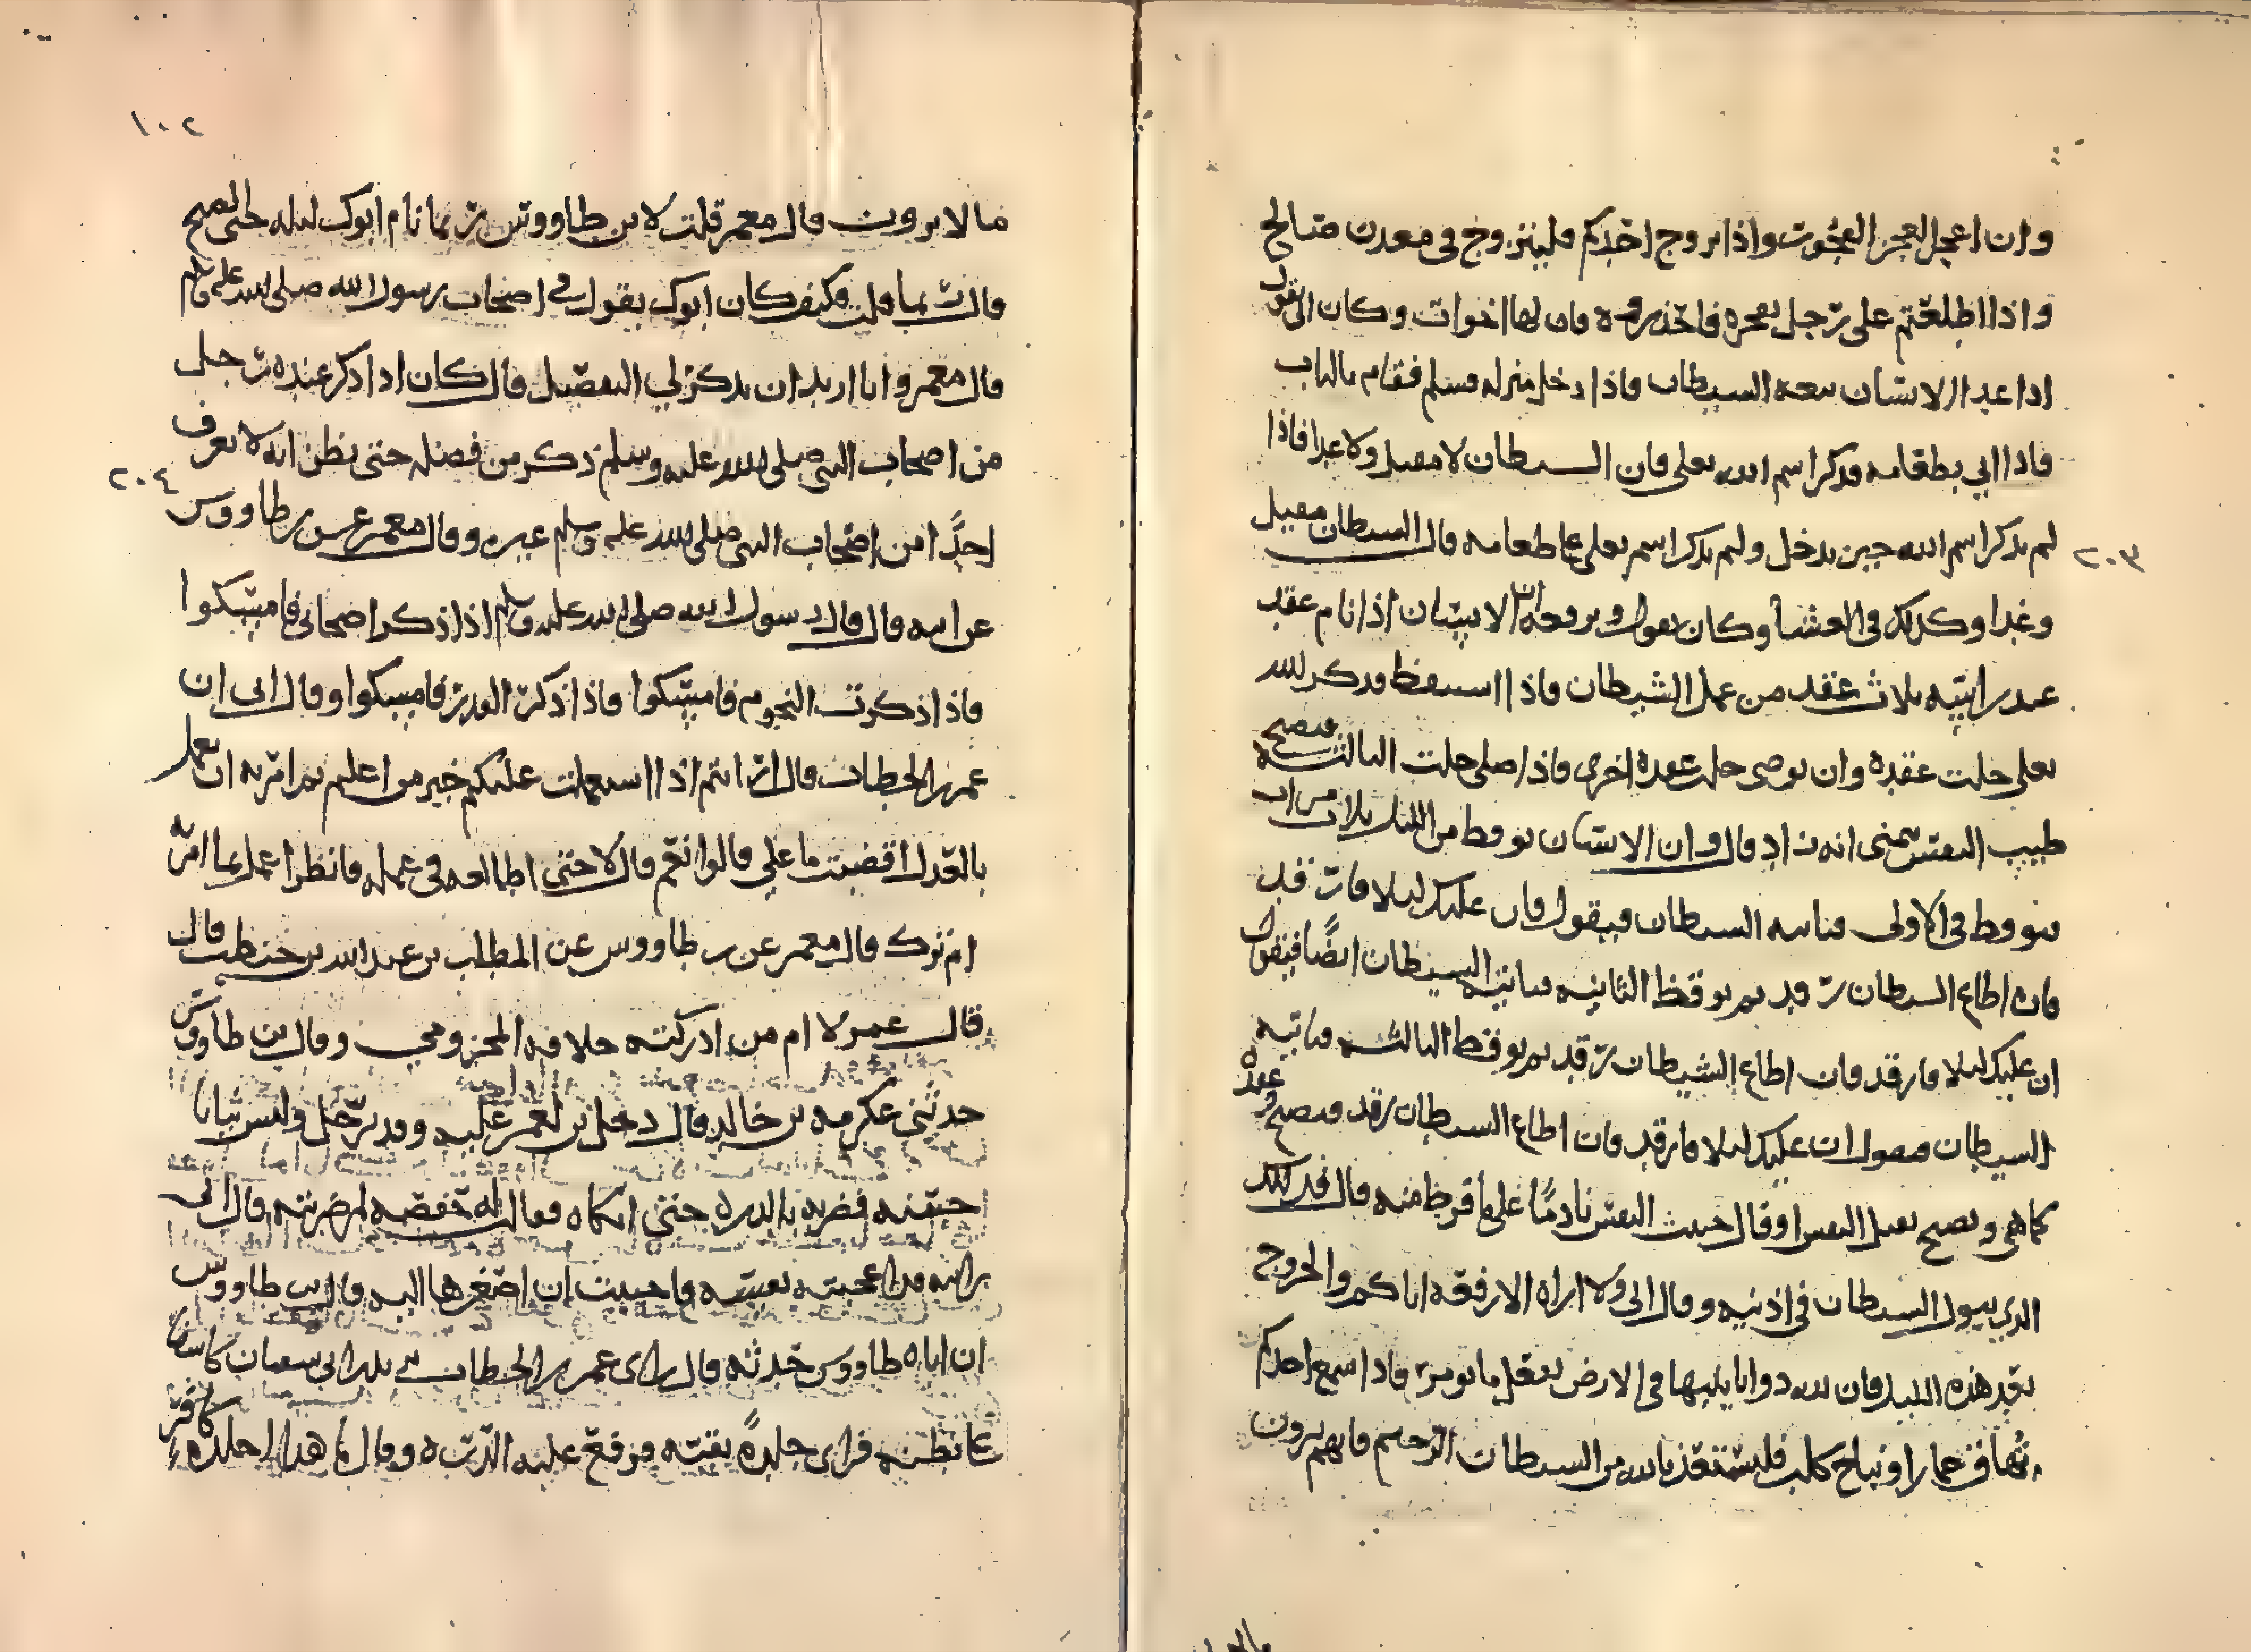 وان اعجز العجز الفجور واذا تزوج احدكم فليتزوج في معدن صالح
واذا اطلعتم على رجل بفجره فاحذروه فان لها اخوات وكان ابي يقول
اذا غدا الانسان تبعه الشيطان فاذا دخل منزله فسلم فقام بالباب
فاذا اتي بطعامه فذكر اسم الله تعلى قال الشيطان لا مقيل ولا غدا فاذا
لم يذكر اسم الله حين يدخل ولم يذكر اسم تعلى على طعامه قال الشيطان مقيل
وغدا وكذلك في العشا وكان يقول الانسان اذا نام عقد
عند راسه ثلاث عقد من عمل الشيطان فاذا استيقظ فذكر الله
تعلى حلت عقدة وان توضى حلت عقدة اخرى فاذا صلى حلت الثالثة فيصبح
طيب النفس يتمنى انه زاد قال وان الانسان يوقظ من الليل ثلاث مرات
فيوقظ في الاولى فياتيه الشيطان فيقول فان عليك ليلا فارقد
فان اطاع الشيطان رقد ثم يوقظ الثانيه فياتيه الشيطان ايضًا فيقول
ان عليك ليلا فارقد فان اطاع الشيطان رقد ثم يوقظ الثالثه فياتيه
الشيطان فيقول ان عليك ليلا فارقد فان اطاع الشيطان رقد فيصبح وعقده
كما هي ويصبح ثقيل النفس او قال خبيث النفس نادمًا على ما فرط منه قال فذلك
الذي يبول الشيطان في اذنيه وقال ابي ولا اراه الا رفعه اياكم والخروج
بعد هذه الليله فان لله دوابا يبثها في الارض تفعل ما تومر فاذا سمع احدكم
نهاق حمار او نباح كلب فليستعذ بالله من الشيطان الرجيم فانهم يرون
٢٠٣
١٠٢
ما لا يرون قال معمر قلت لابن طاووس ربما نام ابوك ليله حتى يصبح
قال ربما قلت وكيف كان ابوك يقول في اصحاب رسول الله صلى الله عليه وسلم
قال معمر وانا اريد ان يذكر لي التفضيل قال كان اذا ذكر عنده رجل
من اصحاب النبي صلى الله عليه وسلم ذكر من فضله حتى يظن انه لا يعرف
٢٠٤
احدًا من اصحاب النبي صلى الله عليه وسلم غيره وقال معمر عن بن طاووس
عن ابيه قال قال رسول الله صلى الله عليه وسلم اذا ذكر اصحابي فامسكوا
فاذا ذكرت النجوم فامسكوا فاذا ذكر القدر فامسكوا وقال ابي ان
عمر بن الخطاب قال ارايتم اذا استعملت عليكم خير من اعلم ثم امرته ان يعمل
بالعدل اقضيت ما علي قالوا نعم قال لا حتى اطالعه في عمله فانظر اعمل بما امرته
ام ترك قال معمر عن بن طاووس عن المطلب بن عبد الله بن حنطب قال
قال عمر لام من ادركته خلافه المخزومي وقال بن طاووس
حدثني عكرمه بن خالد قال دخل بن لعمر عليه وقد ترجل ولبس ثيابا
حسنه فضربه بالدره حتى ابكاه فقالت له حفصه لم ضربته قال اني
رايته قد اعجبته نفسه فاحببت ان اصغرها اليه وقال بن طاووس
ان اباه طاووس حدثه قال راى عمر بن الخطاب يد ابي سفيان كاسفا
عن بطنه فراى جلدةً بقته فرفع عليه الدره وقال ما هذا اجلدة كافر